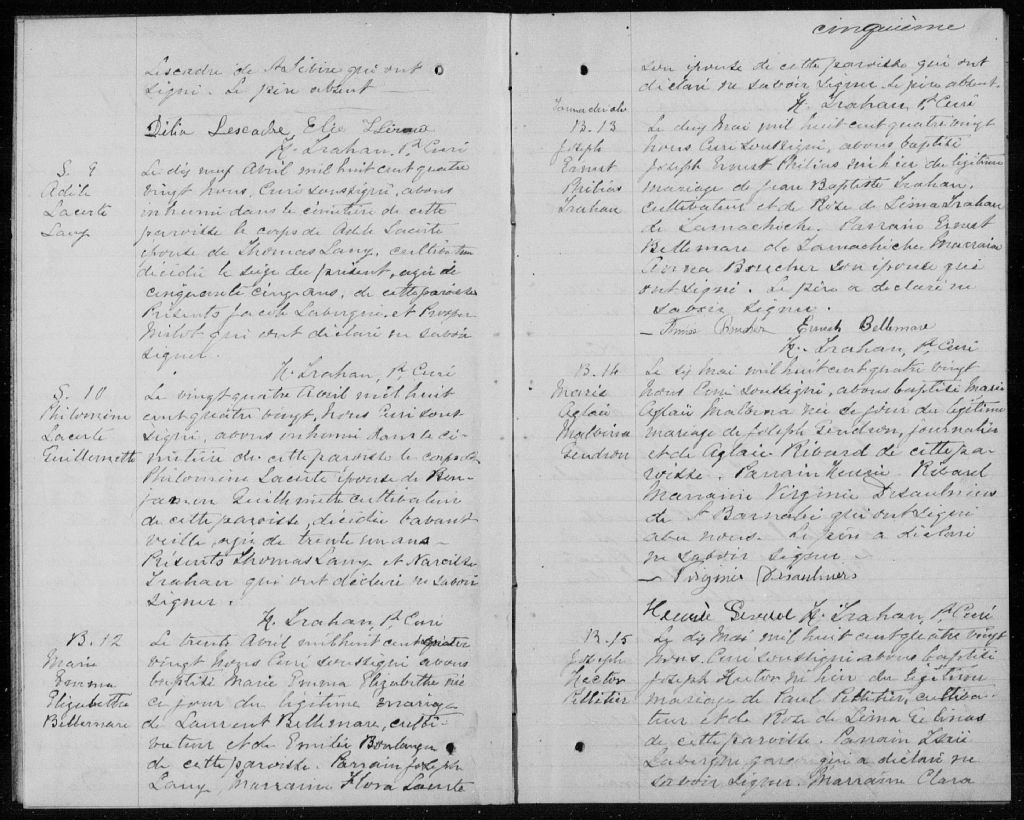 Lescadre de St Sévère qui ont
signé. Le père absent
Délia Lescadre, Elie
H. Trahan, Pt. Curé
S. 9
Adèle
Lacerte
Lamy
Le dix neuf Avril mil huit cent quatre
vingt nous, Curé soussigné, avons
inhumé dans le cimetière de cette
paroisse le corps de Adèle Lacerte
épouse de Thomas Lamy, cultivateur
décédée le seize du présent, agée de
cinquante cinq ans, de cette paroisse
Présents Jacob Lavergne et Prosper
Milot qui ont déclaré ne savoir
signer.
H. Trahan, Pt. Curé
S. 10
Philomène
Lacerte
Guillemette
Le vingt quatre Avril mil huit
cent quatre vingt, nous Curé sous
signé, avons inhumé dans le ci-
metière de cette paroisse le corps de
Philomène Lacerte épouse de Ben-
jamin Guillemette cultivateur
de cette paroisse, décédée l'avant
veille, agée de trente un ans
Présents Thomas Lamy et Narcisse
Trahan qui ont déclaré ne savoir
signer.
H. Trahan, Pt. Curé
B. 12
Marie
Emma
Elizabethe
Bellemare
Le trente Avril mil huit cent quatre
vingt nous Curé soussigné avons
baptisé Marie Emma Elizabethe née
ce jour du légitime mariage
de Laurent Bellemare, culti-
vateur et de Emilie Boulanger
de cette paroisse. Parrain Joseph
Lamy, Marraine Flora Lacerte
cinquième
son épouse de cette paroisse qui ont
déclaré ne savoir signer. Le père absent.
H. Trahan, Pt. Curé
B. 13
Joseph
Ernest
Philias
Trahan
Le dix Mai mil huit cent quatre vingt
nous Curé soussigné, avons baptisé
Joseph Ernest Philias né hier du légitime
mariage de Jean Baptiste Trahan,
cultivateur et de Rose de Lima Trahan
de Yamachiche. Parrain Ernest
Bellemare de Yamachiche Marraine
Anna Boucher son épouse qui
ont signé. Le père a déclaré ne
savoir signer.
Anna Boucher Ernest Bellemare
H. Trahan, Pt. Curé
B. 14
Marie
Aglaé
Malvina
Gendron
Le dix Mai mil huit cent quatre vingt
nous Curé soussigné, avons baptisé Marie
Aglaé Malvina née ce jour du légitime
mariage de Joseph Gendron, journalier
et de Aglaé Rivard de cette pa-
roisse. Parrain Henrie Rivard
Marraine Virginie Desaulniers
de St Barnabé qui ont signé
avec nous. Le père a déclaré
ne savoir signer
Virginie Desaulniers
H. Trahan, Pt. Curé
B. 15
Joseph
Hector
Pelletier
Le dix Mai mil huit cent quatre vingt
nous Curé soussigné avons baptisé
Joseph Hector né hier du légitime
mariage de Paul Pelletier, cultiva-
teur et de Rose de Lima Gelinas
de cette paroisse. Parrain
Lavergne qui a déclaré ne
savoir signer. Marraine Clara